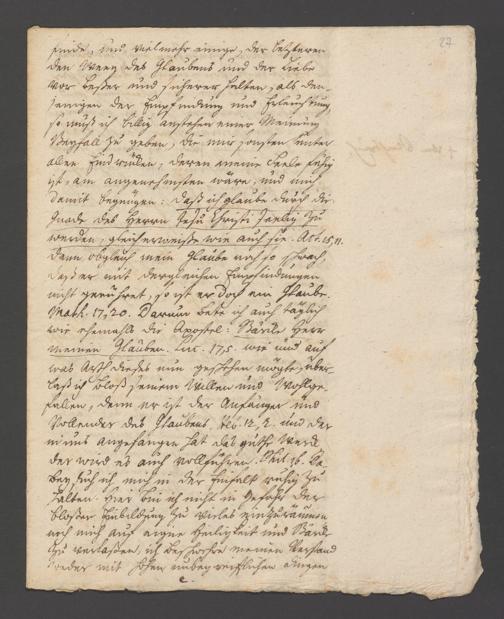 27
finde, und vielmehr einige, der letzteren
den Weeg des Glaubens und der Liebe
vor beßer und sicherer halten, als den-
jenigen der Empfindung und Erleuchtung,
so muß ich billig anstehen einer Meinung
Beyfall zu geben, die mir sonsten unter
allen Eindrücken, deren meine Seele fähig
ist, am angenehmsten wäre, und mich
damit begnügen: daß ich glaube durch die
Gnade des Herrn Jesu Christi seelig zu
werden, gleicherweiße wie auch sie. Act. 15, 11.
Denn obgleich mein Glaube noch so schwach,
daß er mit dergleichen Empfindungen
nicht gerühret, so ist er doch ein Glaube.
Math. 17, 20. Darum bete ich auch täglich
wie ehemals die Apostel: Stärcke Herr
meinen Glauben. Luc. 17, 5. wie und auf
was Arth dieses nun geschehen mögte, über-
laß ich bloß seinem Willen und Wohlge-
fallen, denn er ist der Anfänger und
Vollender des Glaubens. Ebr. 12, 2. und der
in uns angefangen hat das guthe Werck
der wird es auch vollführen. Phil. 1, 6. Da-
bey such ich mich in der Einfalt ruhig zu
halten. Hier bin ich nicht in Gefahr der
bloßen Einbildung zu vieles einzuräumen
noch mich auf eigne Heiligkeit und Stärcke
zu verlaßen, ich beschwehre meinen Verstand
weder mit hohen unbegreifflichen dingen